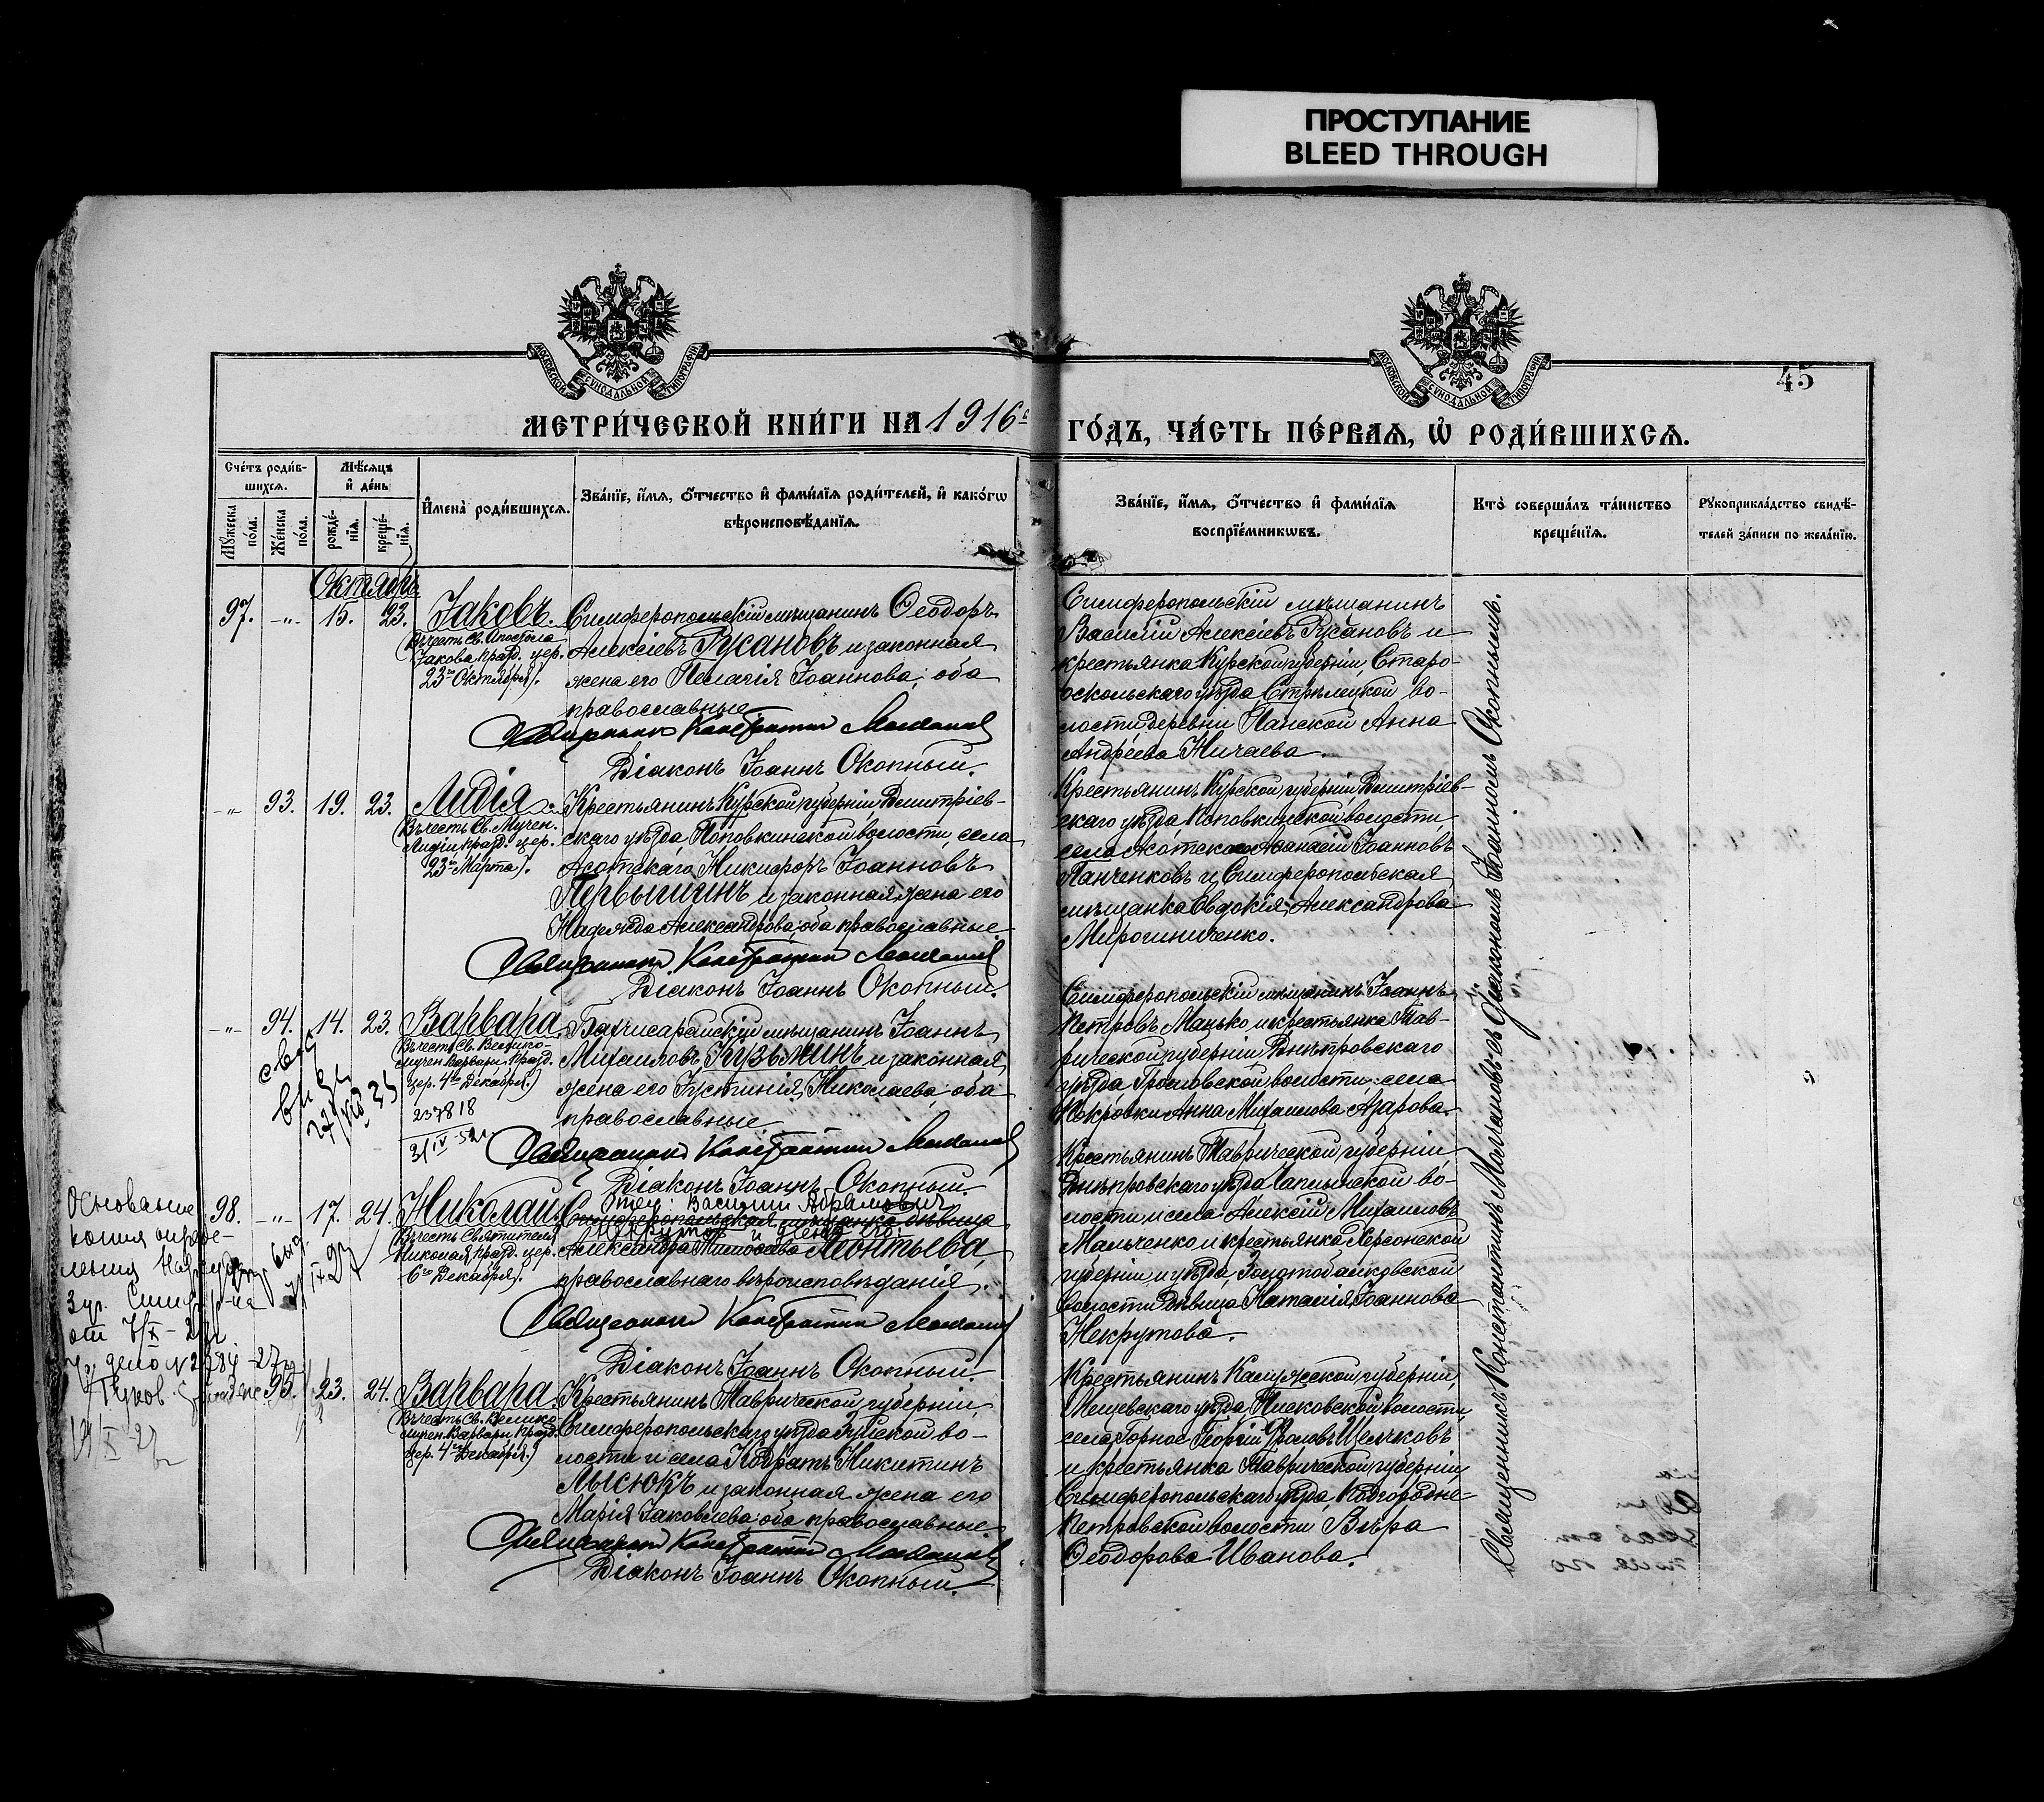 ПРОСТУПАНИЕ
BLEED THROUGH
МОСКОВСКОЙ СУНОДАЛЬНОЙ ТИПОГРАФІИ
МОСКОВСКОЙ СУНОДАЛЬНОЙ ТИПОГРАФІИ
45
МЕТРИ́ЧЕСКОЙ КНИ́ГИ НА 1916 ГО́ДЪ, ЧА́СТЬ ПЕ́РВАЯ, Ѡ РОДИ́ВШИХСЯ.
Сче́тъ роди́в-
шихся.
Мѣ́сяцъ
и де́нь
Мꙋжеска по́ла.
Же́нска по́ла.
рожде́-
нїѧ.
креще́-
нїѧ.
Имена̀ роди́вшихся.
Зва́нїе, и́мѧ, ѻ́тчество и фами́лїѧ роди́телей, и како́гѡ
вѣроисповѣ́данїѧ.
Зва́нїе, и́мѧ, ѻ́тчество и фами́лїѧ
воспрїе́мникѡвъ.
Кто̀ соверша́лъ та́инство
креще́нїѧ.
Рꙋкоприкла́дство свидѣ́-
телей за́писи по жела́нїю.
Октябрь
97. -"- 15. 23. Іаковъ.
(Въ честь Св. Апостола
Іакова, празд. цер.
23го Октября).
Симферопольскій мѣщанинъ Ѳеодоръ
Алексіевъ Русановъ и законная
жена его Пелагія Іоаннова, оба
православные.
Священникъ Константинъ Молчановъ
Діаконъ Іоаннъ Окопный.
Симферопольскій мѣщанинъ
Василій Алексіевъ Русановъ и
крестьянка Курской губерніи, Старо-
оскольскаго уѣзда, Стрѣлецкой во-
лости, деревни Панской Анна
Андреева Ничаева.
-"- 93. 19. 23. Лидія.
(Въ честь Св. Мучен.
Лидіи, празд. цер.
23го Марта).
Крестьянинъ Курской губерніи, Димитріев-
скаго уѣзда, Поповкинской волости, села
Никифоръ Іоанновъ
Первышинъ и законная жена его
Надежда Александрова, оба православные.
Священникъ Константинъ Молчановъ
Діаконъ Іоаннъ Окопный.
Крестьянинъ Курской губерніи, Димитріев-
скаго уѣзда, Поповкинской волости,
села Аѳанасій Іоанновъ
Панченковъ и Симферопольская
мѣщанка Евдокія Александрова
Мирошниченко.
-"- 94. 14. 23. Варвара.
(Въ честь Св. Велико-
мучен. Варвары, празд.
цер. 4го Декабря.)
237818
Бахчисарайскій мѣщанинъ Іоаннъ
Михаиловъ Кузьминъ и законная
жена его Іустинія Николаева, оба
православные.
Священникъ Константинъ Молчановъ
Діаконъ Іоаннъ Окопный.
Симферопольскій мѣщанинъ Іоаннъ
Петровъ Мацько и крестьянка Тав-
рической губерніи, Днѣпровскаго
уѣзда, Громовской волости, села
Покровки Анна Михаилова Азарова.
98. -"- 17. 24. Николай.
(Въ честь Святителя
Николая, празд. цер.
6го Декабря).
Отец: Василий Абрамович
Некрутов и жена его
Симферопольская мѣщанка дѣвица
Александра Леонтьева,
православнаго вѣроисповѣданія.
Священникъ Константинъ Молчановъ
Діаконъ Іоаннъ Окопный.
Крестьянинъ Таврической губерніи,
Днѣпровскаго уѣзда, Чаплинской во-
лости и села Алексій Михаиловъ
Мальченко и крестьянка Херсонской
губерніи и уѣзда, Золотобалковской
волости, дѣвица Наталія Іоаннова
Некрутова.
Основание
копия опреде-
ления Нарсуда
дело № 2784 - 27
95. 23. 24. Варвара.
(Въ честь Св. Велико-
мучен. Варвары, празд.
цер. 4го Декабря.)
Крестьянинъ Таврической губерніи,
Симферопольскаго уѣзда, Зуйской во-
лости и села Кодратъ Никитинъ
Лысюкъ и законная жена его
Марія Іаковлева, оба православные.
Священникъ Константинъ Молчановъ
Діаконъ Іоаннъ Окопный.
Крестьянинъ Калужской губерніи,
Мещевскаго уѣзда, волости,
села Горное Георгій Фроловъ Щелчковъ
и крестьянка Таврической губерніи,
Симферопольскаго уѣзда, Подгородне-
Петровской волости Вѣра
Ѳеодорова Иванова.
Священникъ Константинъ Молчановъ съ Діакономъ Іоанномъ Окопнымъ.